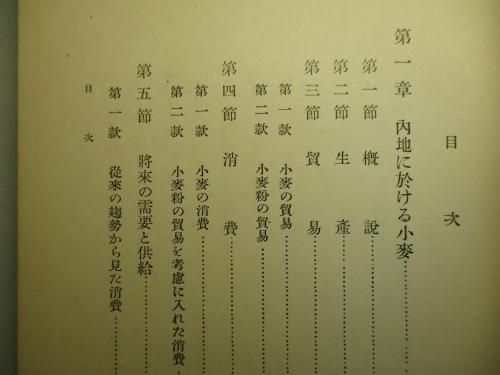 目次
第一章 內地に於ける小麥
第一節 槪說
第二節 生產
第三節 貿易
第一款 小麥の貿易
第二款 小麥粉の貿易
第四節 消費
第一款 小麥の消費
第二款 小麥粉の貿易を考慮に入れた消費
第五節 將來の需要と供給
第一款 從來の趨勢から見た消費
目次